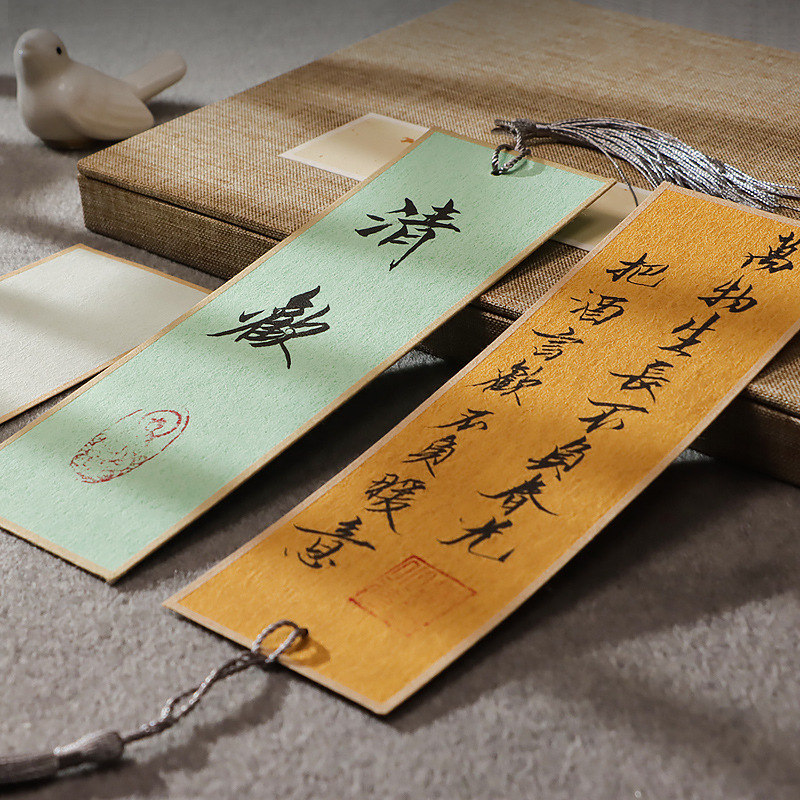 清歡
萬物生長不負春光
把酒言歡不負暖意